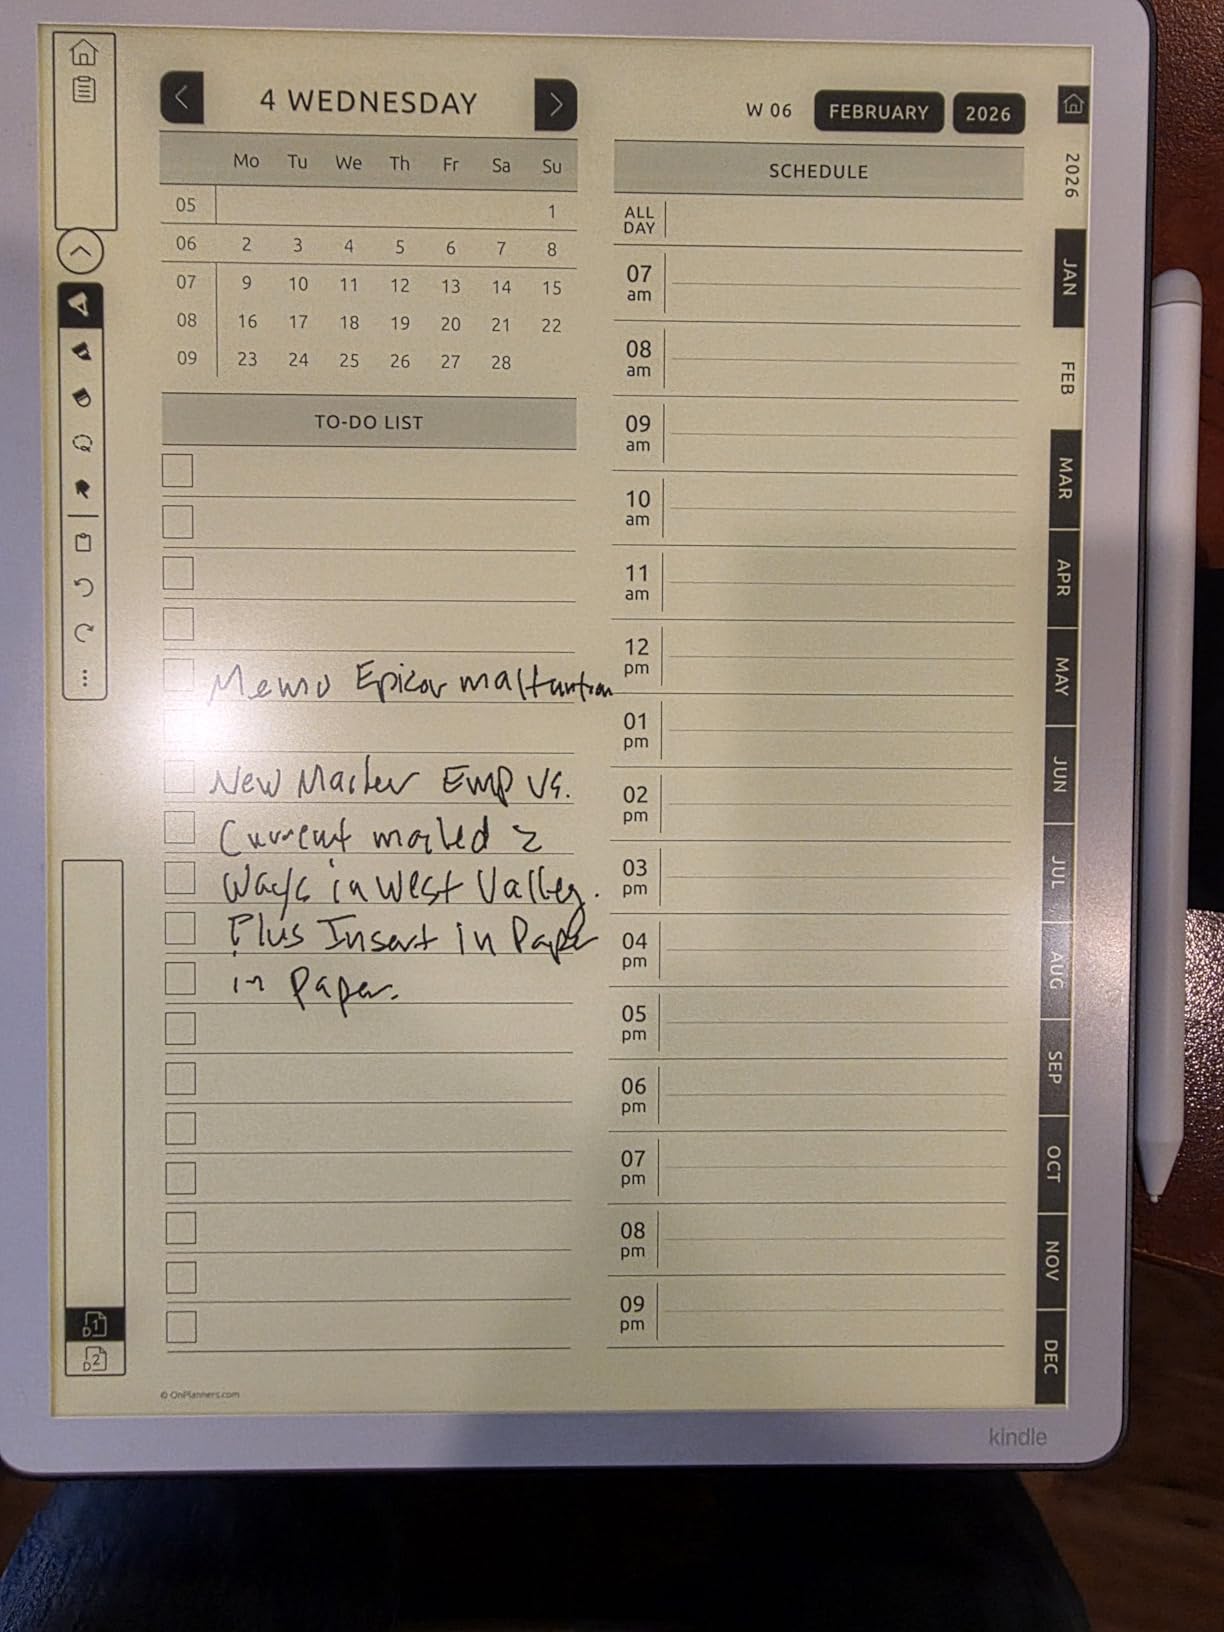 4 WEDNESDAY
W 06 FEBRUARY 2026
Mo Tu We Th Fr Sa Su
05 1
06 2 3 4 5 6 7 8
07 9 10 11 12 13 14 15
08 16 17 18 19 20 21 22
09 23 24 25 26 27 28
TO-DO LIST
Memo Epicor
New Mailer Emp vs.
Current mailed 2
Ways in West Valley.
Plus Insert in Paper
in Paper.
© OnPlanners.com
D1
D2
SCHEDULE
ALL
DAY
07
am
08
am
09
am
10
am
11
am
12
pm
01
pm
02
pm
03
pm
04
pm
05
pm
06
pm
07
pm
08
pm
09
pm
2026
JAN
FEB
MAR
APR
MAY
JUN
JUL
AUG
SEP
OCT
NOV
DEC
kindle